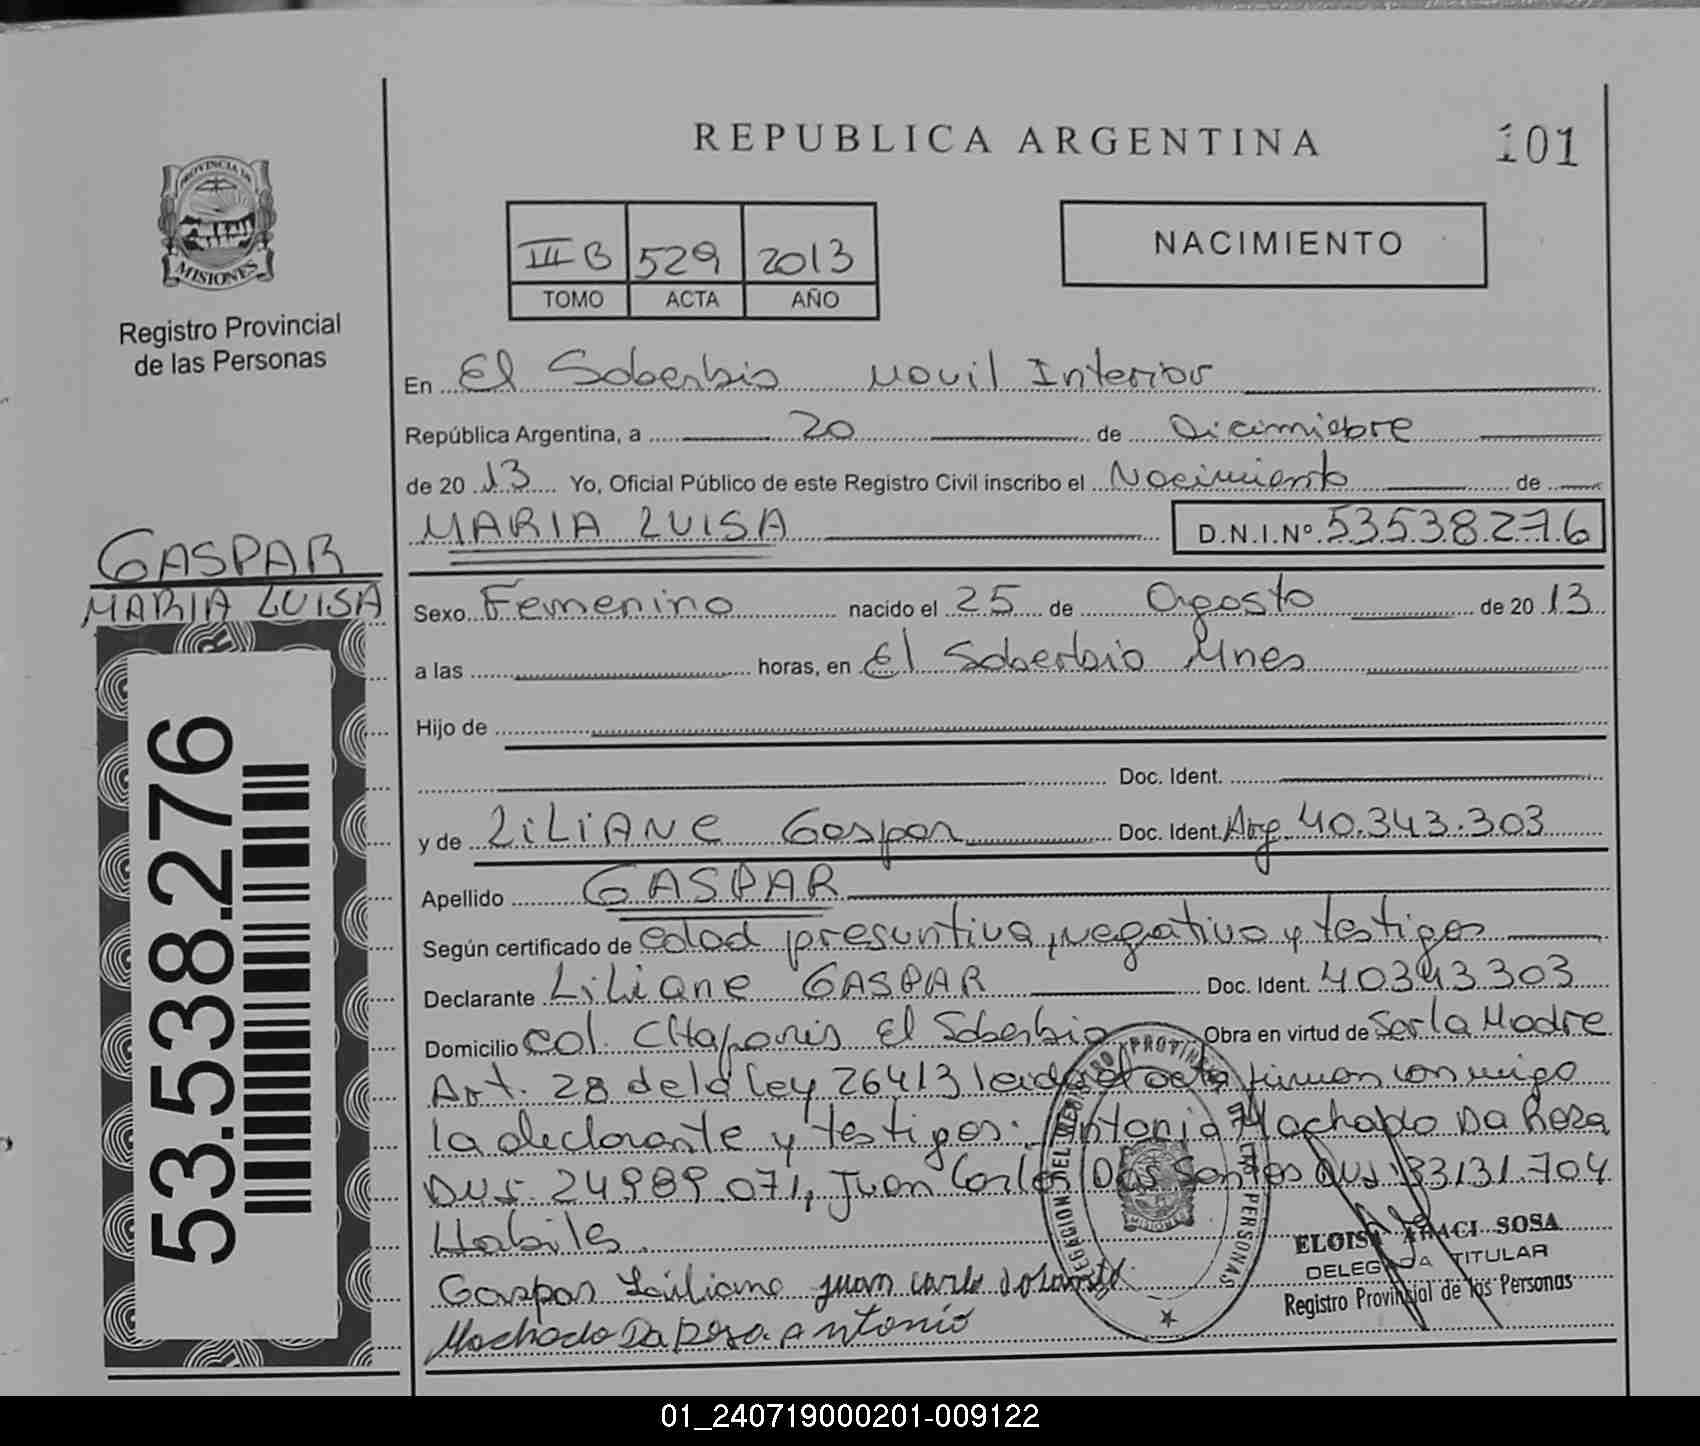 REPUBLICA ARGENTINA
101
PROVINCIA DE
MISIONES
Registro Provincial
de las Personas
III B 529 2013
TOMO ACTA AÑO
NACIMIENTO
En El Soberbio Movil Interior
República Argentina, a 20 de Diciembre
de 20 13 Yo, Oficial Público de este Registro Civil inscribo el Nacimiento de
MARIA LUISA D.N.I.Nº 53538276
GASPAR
MARIA LUISA
Sexo Femenino nacido el 25 de Agosto de 20 13
a las horas, en El Soberbio Mnes
Hijo de
Doc. Ident.
y de LILIANE Gaspar Doc. Ident. Arg 40.343.303
Apellido GASPAR
Según certificado de edad presuntiva, negativo y testigos
Declarante Liliane GASPAR Doc. Ident. 40343303
Domicilio Col. CHafariz El Soberbio Obra en virtud de Ser la Madre
Art. 28 de la ley 26413 leida el acta firman conmigo
la declarante y testigos: Antonio Machado Da Roza
DNI. 24989.071, Juan Carlos Dos Santos DNI 33131.704
Habiles
Gaspar Liliane Juan Carlo
Machado Da Rosa Antonio
53.538.276
ELOISA ARACI SOSA
DELEGADA TITULAR
Registro Provincial de las Personas
DELEGACION DEL REGISTRO PROVINCIAL DE LAS PERSONAS
01_240719000201-009122